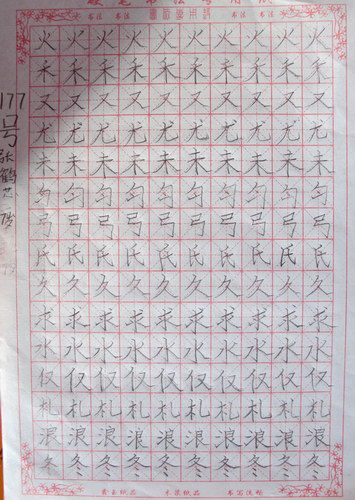 书法 书法 书法 书法
火 火 火 火 火 火 火 火 火 火
禾 禾 禾 禾 禾 禾 禾 禾 禾 禾
又 又 又 又 又 又 又 又 又 又
尤 尤 尤 尤 尤 尤 尤 尤 尤 尤
未 未 未 未 未 未 未 未 未 未
匀 匀 匀 匀 匀 匀 匀 匀 匀 匀
弓 弓 弓 弓 弓 弓 弓 弓 弓 弓
氏 氏 氏 氏 氏 氏 氏 氏 氏 氏
久 久 久 久 久 久 久 久 久 久
求 求 求 求 求 求 求 求 求 求
水 水 水 水 水 水 水 水 水 水
仅 仅 仅 仅 仅 仅 仅 仅 仅 仅
札 札 札 札 札 札 札 札 札 札
浪 浪 浪 浪 浪 浪 浪 浪 浪 浪
冬 冬 冬 冬 冬 冬 冬 冬 冬 冬
177号 张鹤 7岁